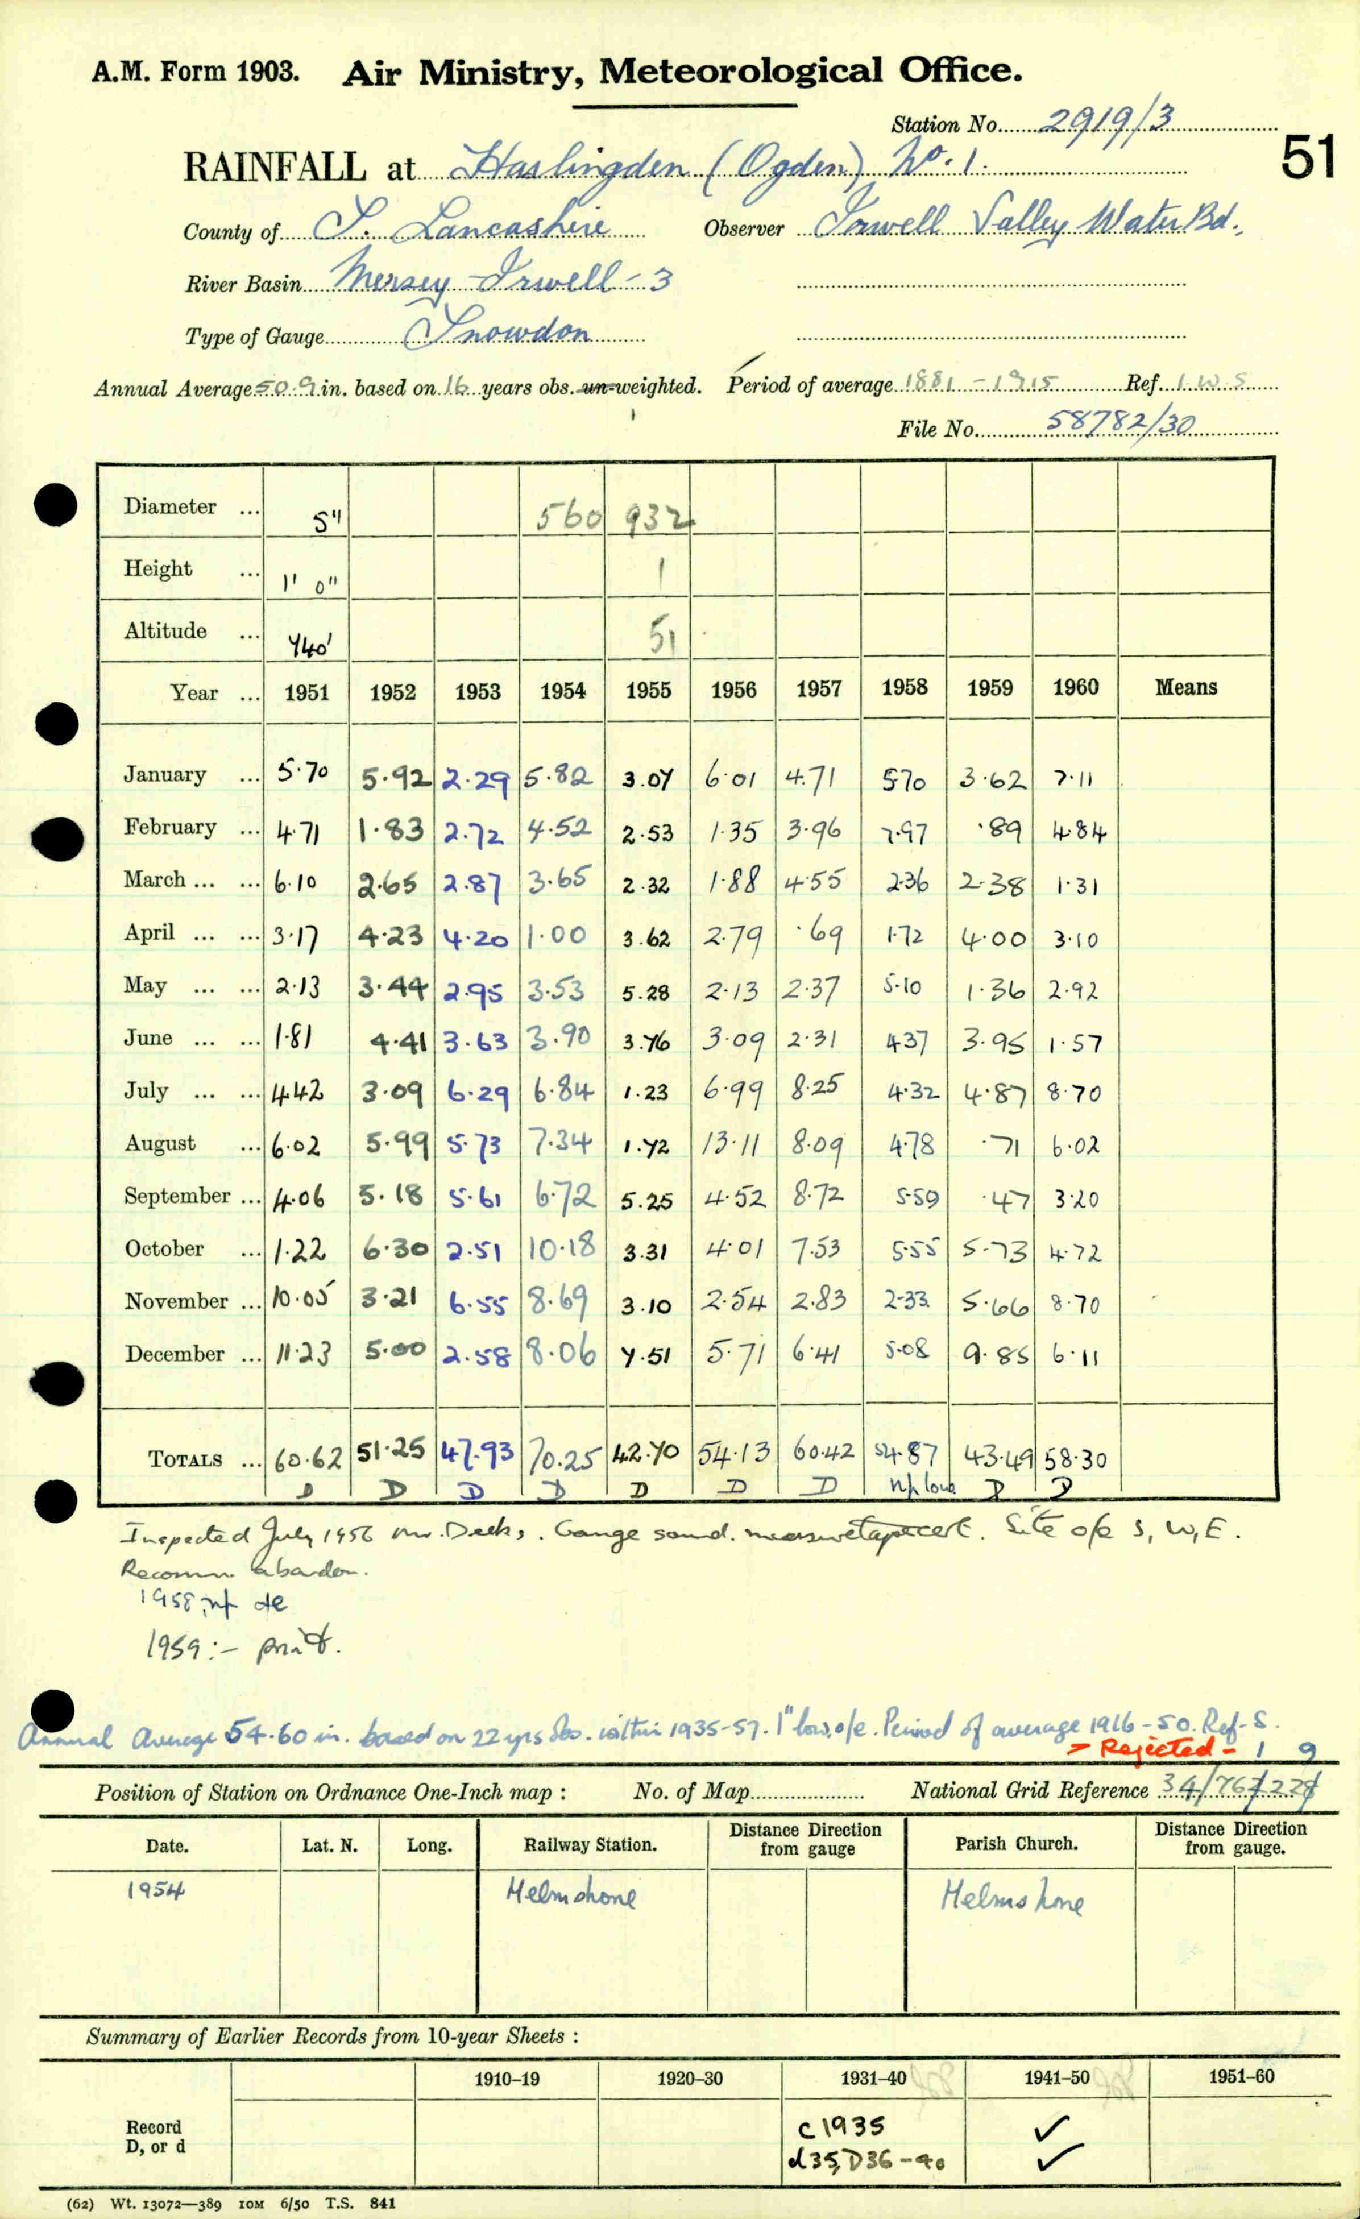 A.M. Form 1903. Air Ministry, Meteorological Office.
Station No. 2919/3
51
RAINFALL at Haslingden (Ogden) No. 1.
County of S. Lancashire Observer Irwell Valley Water Bd.
River Basin Mersey-Irwell-3
Type of Gauge Snowdon
Annual Average 50.9 in. based on 16 years obs. un-weighted. Period of average 1881-1915 Ref. I.W.S
File No. 58782/30
Diameter ... 5" 560 932
Height ... 1' 0" 1
Altitude ... 740' 51
Year ... 1951 1952 1953 1954 1955 1956 1957 1958 1959 1960 Means
January ... 5.70 5.92 2.29 5.82 3.07 6.01 4.71 5.70 3.62 7.11
February ... 4.71 1.83 2.72 4.52 2.53 1.35 3.96 7.97 .89 4.84
March ... ... 6.10 2.65 2.87 3.65 2.32 1.88 4.55 2.36 2.38 1.31
April ... ... 3.17 4.23 4.20 1.00 3.62 2.79 .69 1.72 4.00 3.10
May ... ... 2.13 3.44 2.95 3.53 5.28 2.13 2.37 5.10 1.36 2.92
June ... ... 1.81 4.41 3.63 3.90 3.76 3.09 2.31 4.37 3.95 1.57
July ... ... 4.42 3.09 6.29 6.84 1.23 6.99 8.25 4.32 4.87 8.70
August ... 6.02 5.99 5.73 7.34 1.72 13.11 8.09 4.78 .71 6.02
September ... 4.06 5.18 5.61 6.72 5.25 4.52 8.72 5.59 .47 3.20
October ... 1.22 6.30 2.51 10.18 3.31 4.01 7.53 5.55 5.73 4.72
November ... 10.05 3.21 6.55 8.69 3.10 2.54 2.83 2.33 5.66 8.70
December ... 11.23 5.00 2.58 8.06 7.51 5.71 6.41 5.08 9.85 6.11
TOTALS ... 60.62 51.25 47.93 70.25 42.70 54.13 60.42 54.87 43.49 58.30
D D D D D D D D D
Inspected July 1956 Mr. Deeks. Gauge sound. Site o/e S, W, E.
Recomm. abandon.
1958
1959:- print.
Annual Average 54.60 in. based on 22 yrs obs. within 1935-57. 1" low, o/e. Period of average 1916-50. Ref- S.
> Rejected - 1 9
Position of Station on Ordnance One-Inch map : No. of Map National Grid Reference 34/767228
Date. Lat. N. Long. Railway Station. Distance Direction from gauge Parish Church. Distance Direction from gauge.
1954 Helmshore Helmshore
Summary of Earlier Records from 10-year Sheets :
1910-19 1920-30 1931-40 1941-50 1951-60
Record c 1935 ✓
D, or d d35, D36-40 ✓
(62) Wt. 13072—389 10M 6/50 T.S. 841